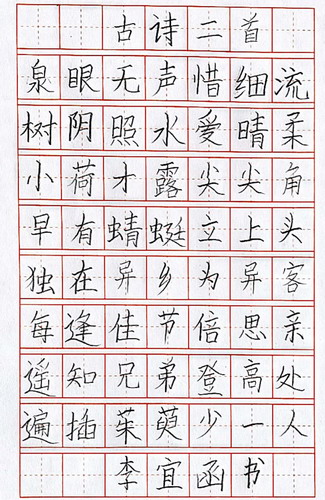 古诗二首
泉眼无声惜细流
树阴照水爱晴柔
小荷才露尖尖角
早有蜻蜓立上头
独在异乡为异客
每逢佳节倍思亲
遥知兄弟登高处
遍插茱萸少一人
李宜函书